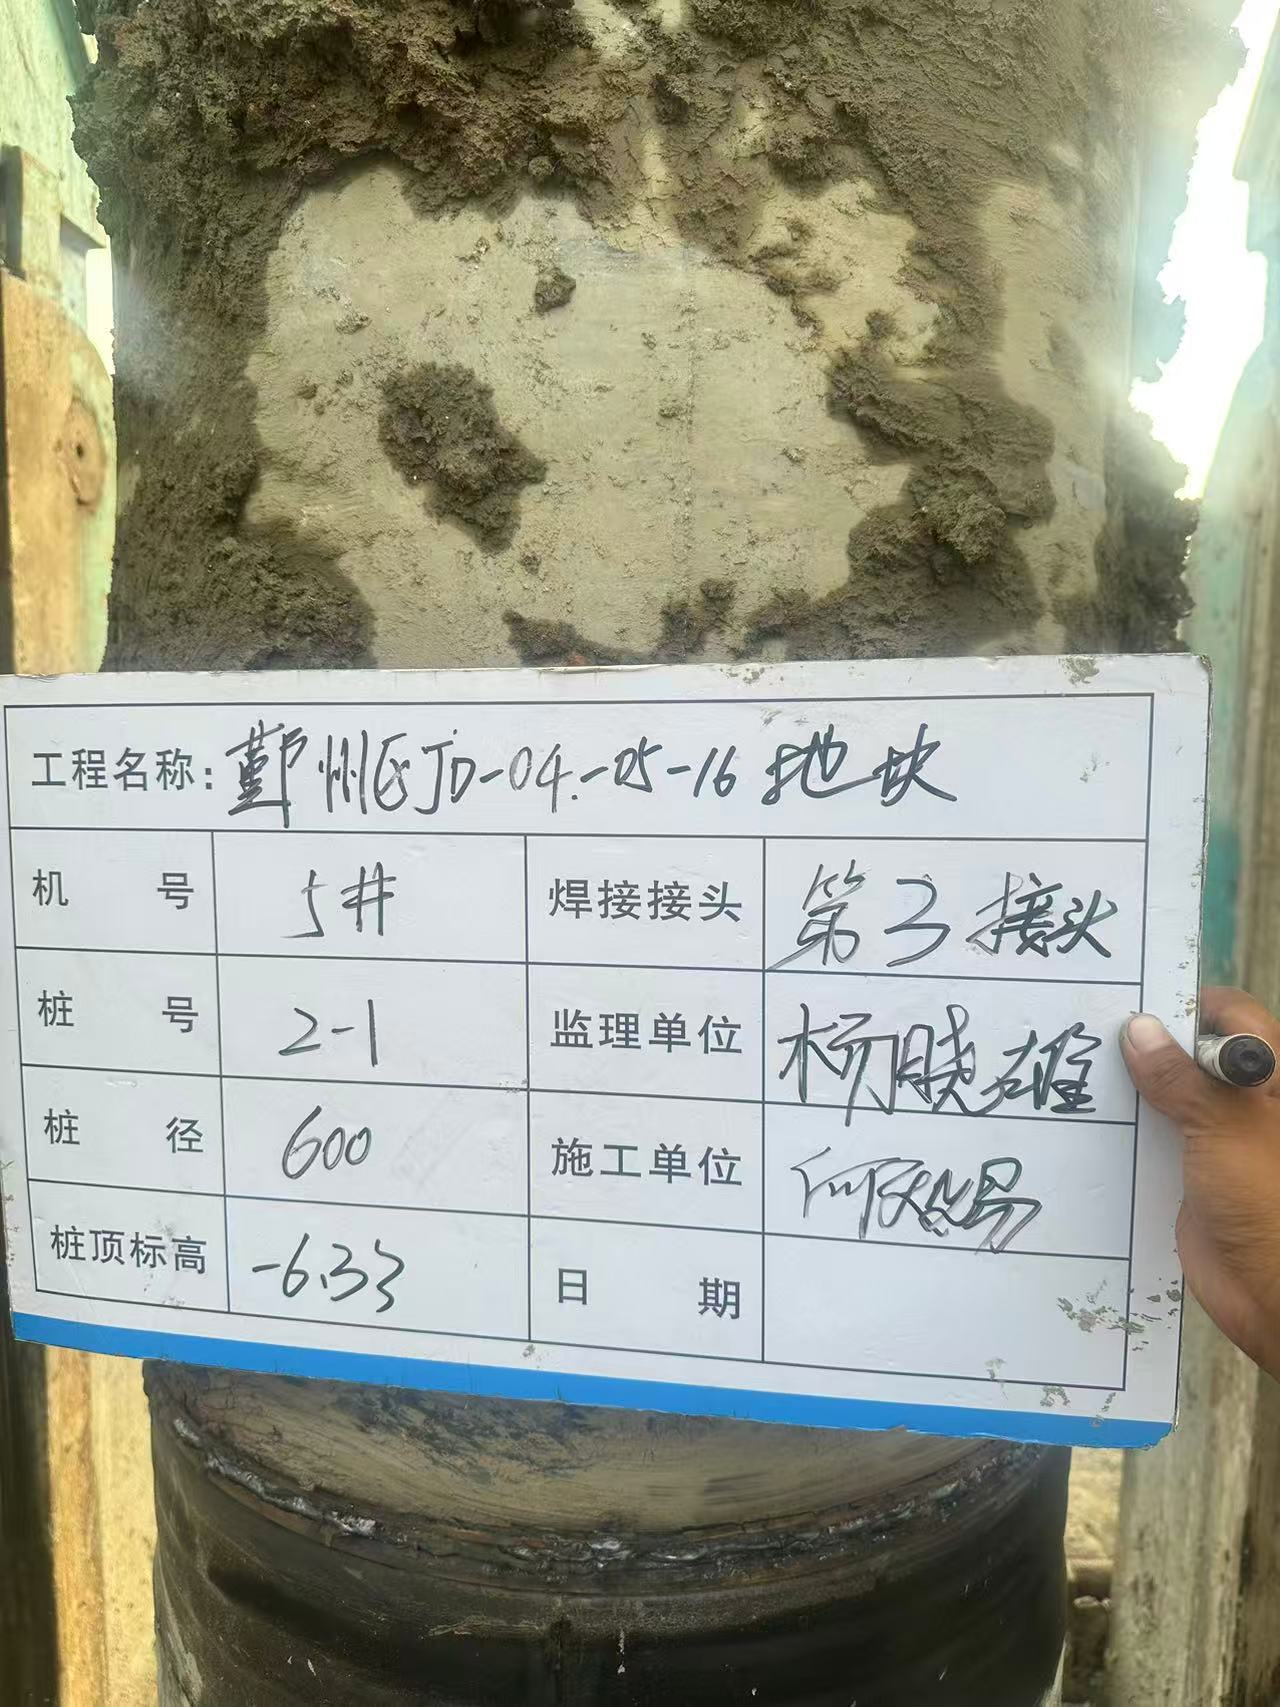 工程名称: 鄞州区JD-04-05-16地块
机号 5# 焊接接头 第3接头
桩号 2-1 监理单位 杨晓雄
桩径 600 施工单位 何
桩顶标高 -6.33 日期